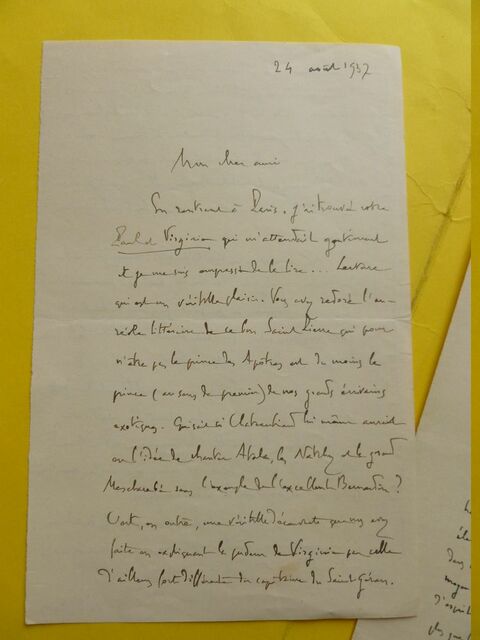 24 août 1937
Mon cher ami
En rentrant à Paris, j'ai trouvé votre
Paul et Virginie qui m'attendait gentiment
et je me suis empressé de le lire... Lecture
qui est un véritable plaisir. Vous avez redoré l'au-
réole littéraire de ce bon Saint Pierre qui pour
n'être pas le prince des Apôtres est du moins le
prince (au sens de premier) de nos grands écrivains
exotiques. Qui sait si Chateaubriand lui même aurait
eu l'idée de chanter Atala, les Natchez et le grand
Meschacebé sans l'exemple de l'excellent Bernardin ?
C'est, en outre, une véritable découverte que vous avez
faite en expliquant la pudeur de Virginie par celle
d'ailleurs fort différente du capitaine du Saint Géran.